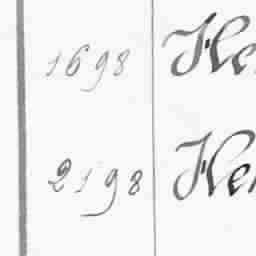 1698 He
2198 Her